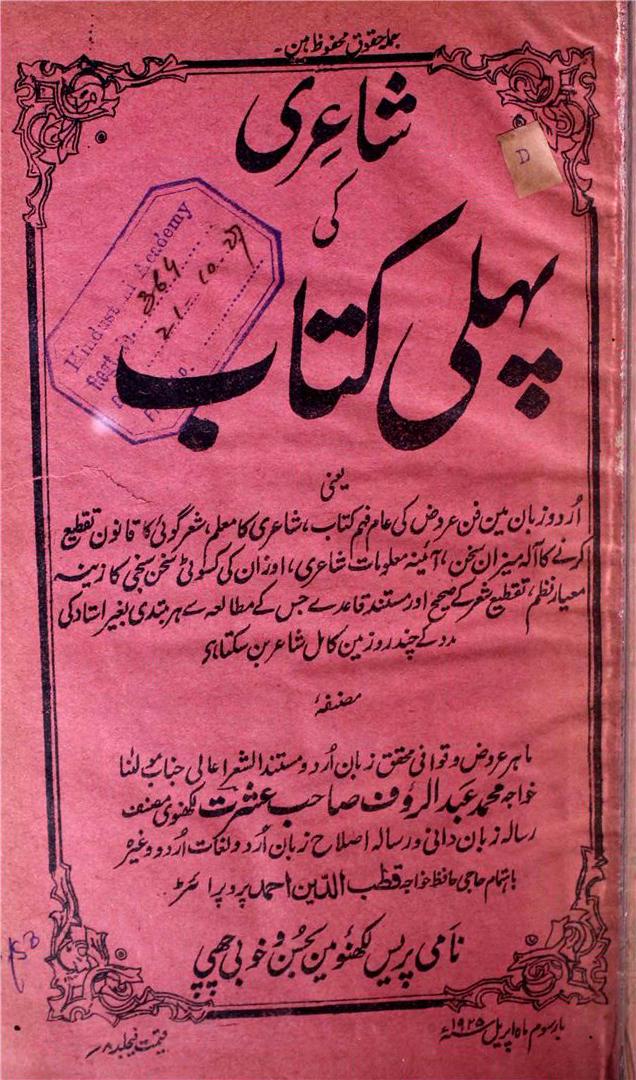 جملہ حقوق محفوظ ہین۔
شاعری
کی
پہلی کتاب
D
Hindustani Academy
364
21.10.27
یعنی
اُردو زبان مین فن عروض کی عام فہم کتاب، شاعری کا معلم، شعر گوئی کا قانون تقطیع
کرنے کا آلہ میزان سخن، آئینہ معلومات شاعری، اوزان کی کسوٹی سخن سنجی کا زینہ
معیار نظم، تقطیع شعر کے صحیح اور مستند قاعدے جس کے مطالعہ سے ہر مبتدی بغیر استاد کی
مدد کے چند روز مین کامل شاعر بن سکتا ہے
مصنفۂ
ماہر عروض و قوافی محقق زبان اُردو مستند الشعرا عالی جناب مولٰنا
خواجہ محمد عبد الرؤف صاحب عشرت لکھنوی مصنف
رسالہ زبان دانی و رسالہ اصلاح زبان اُردو و لغات اُردو وغیرہ
باہتمام حاجی حافظ خواجہ قطب الدین احمد پروپرائٹر
نامی پریس لکھنؤ مین بحسن و خوبی چھپی
بار سوم ماہ اپریل سنہ ۱۹۲۵ء
قیمت فیجلد ۸؍